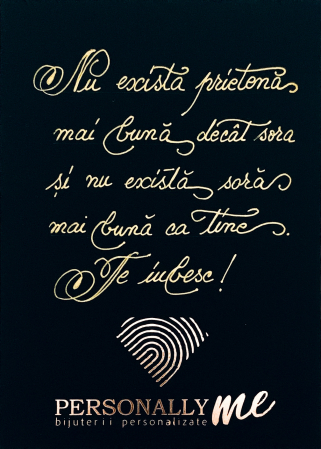 Nu exista prietenă
mai bună decât sora
și nu există soră
mai bună ca tine.
Te iubesc!
PERSONALLY me
bijuterii personalizate